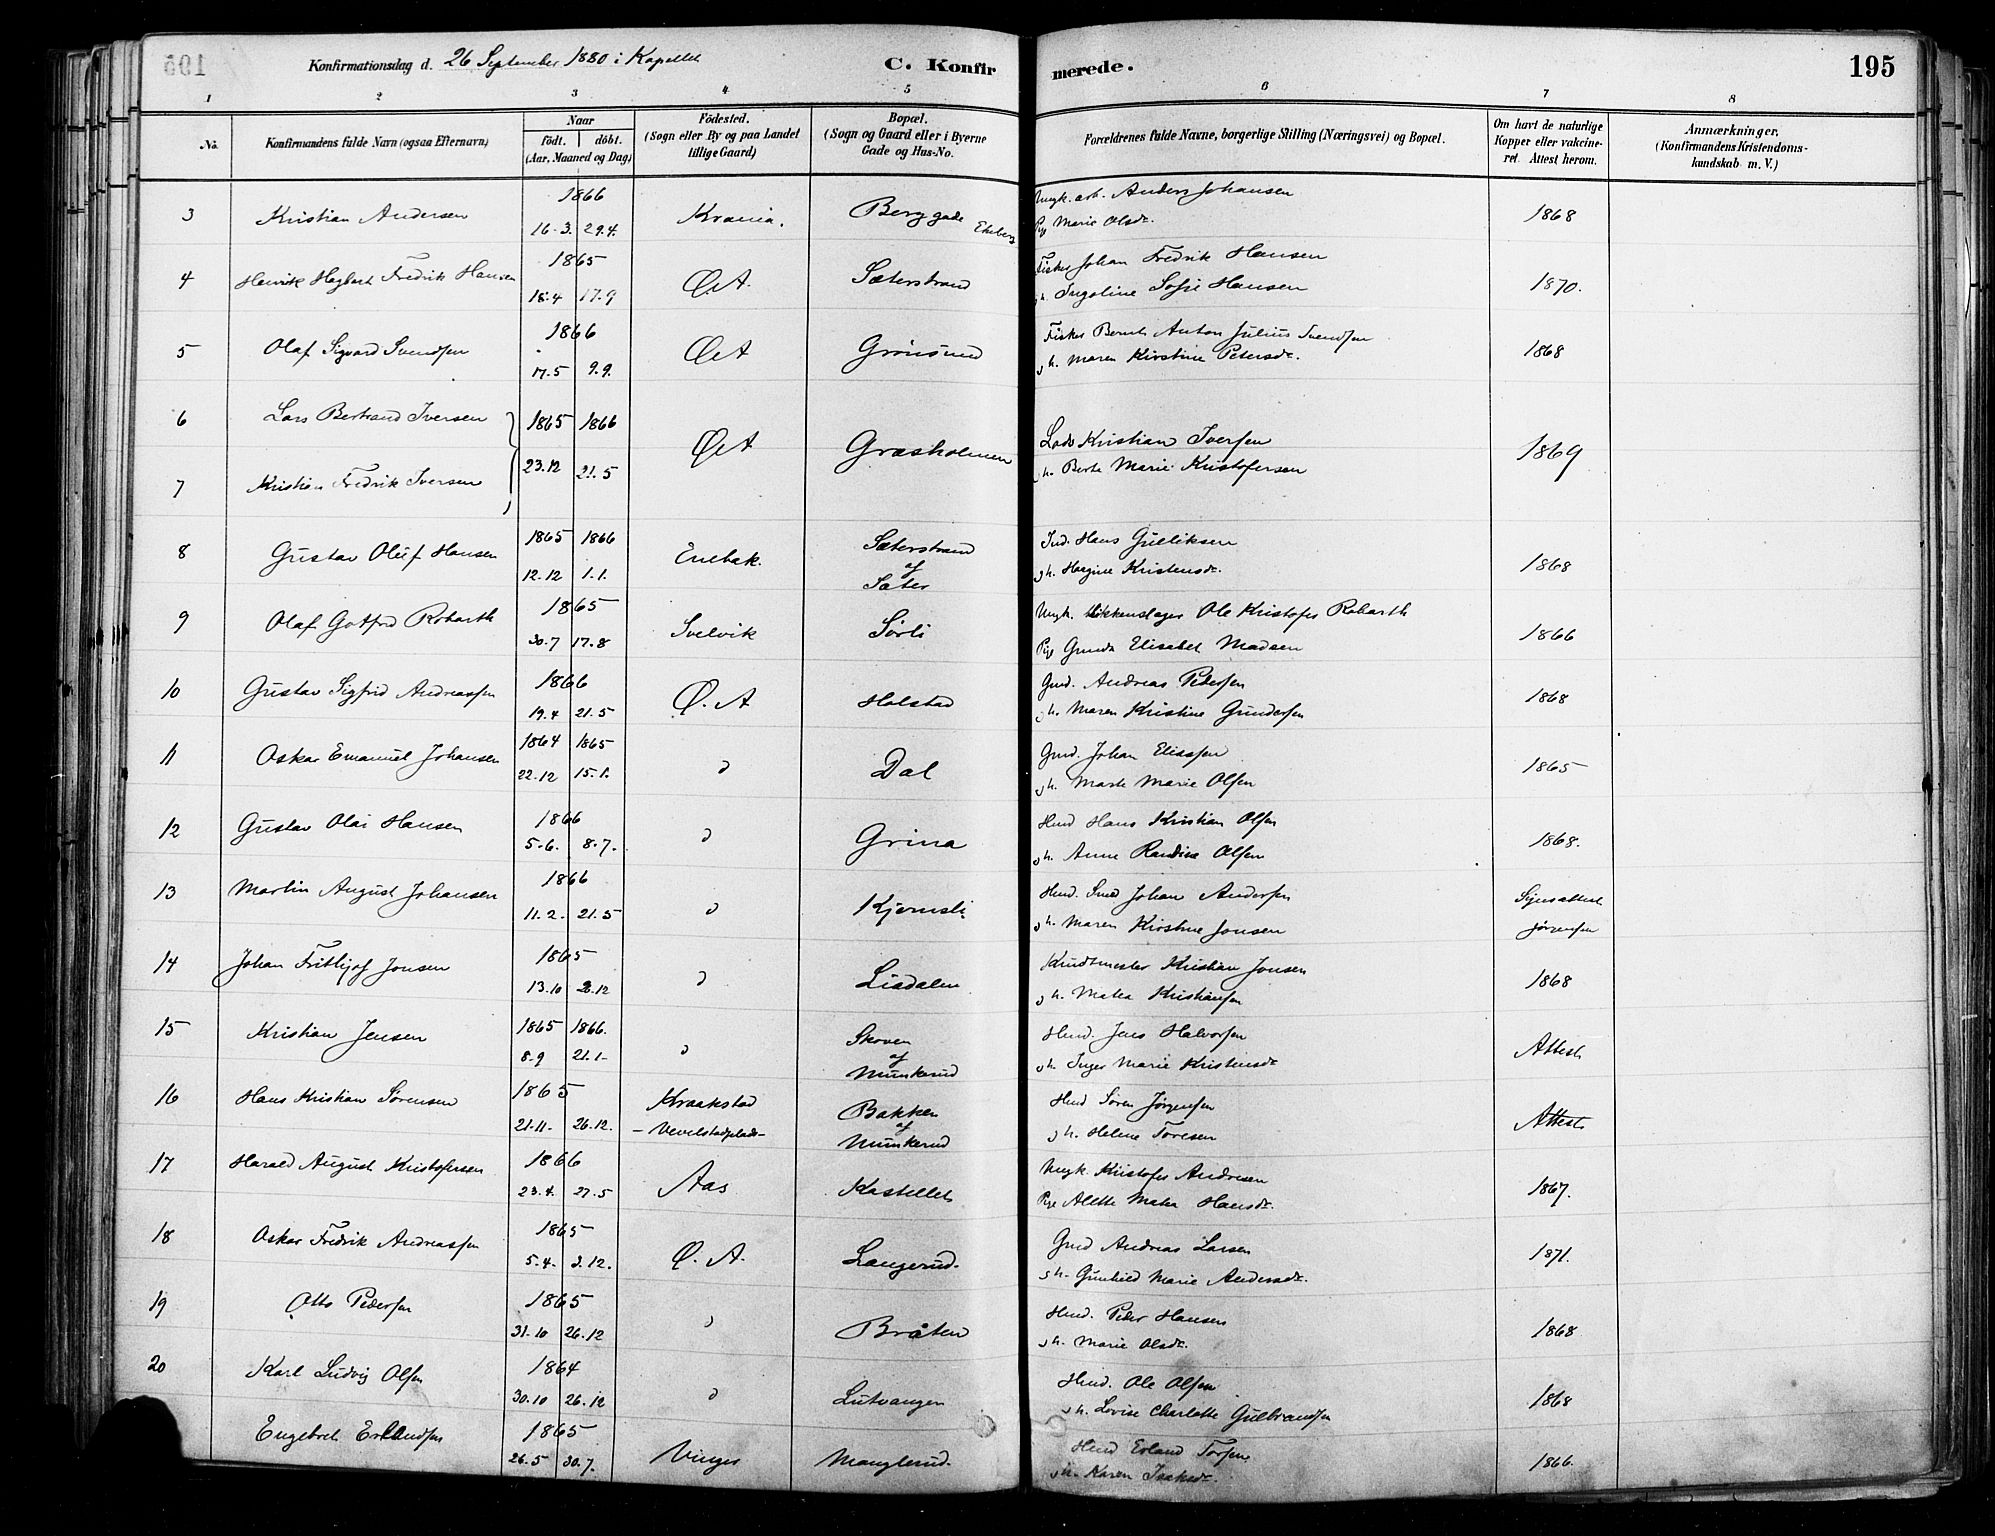 Konfirmationsdag d. 26 September 1880 i Kapellet
C. Konfirmerede.
195
1 2 3 4 5 6 7 8
No. Konfirmandens fulde Navn (ogsaa Efternavn) Naar födt. döbt. (Aar, Maaned og Dag) Födested. (Sogn eller By og paa Landet tillige Gaard) Bopæl. (Sogn og Gaard eller i Byerne Gade og Hus-No. Forældrenes fulde Navne, borgerlige Stilling (Næringsvei) og Bopæl. Om havt de naturlige Kopper eller vakcineret. Attest herom. Anmærkninger. (Konfirmandens Kristendomskundskab m. V.)
3 Kristian Andersen 1866 16-3. 29.4. Krania. Berg gade Ekeberg Ungk. arb. Anders Johansen
Pig Marie Olsdr. 1868
4 Henrik Hagbart Fredrik Hansen 1865 18-4 17.9 Ø.A. Sæterstrand Fisker Johan Fredrik Hansen
o.h. Ingoline Sofie Hansen 1870.
5 Olaf Sigvard Svendsen 1866 17.5 9.9. Ø A Grönsund Fisker Bernt Anton Julius Svendsen
o.h. Maren Kirstine Petersdr. 1868
6 Lars Bertrand Iversen 1865 1866
23.12 21.5 Ø A Græsholmen Lods Kristian Iversen
o.h. Berte Marie Kristofersen 1869
7 Kristian Fredrik Iversen
8 Gustav Oluf Hansen 1865 1866 12.12 1.1. Enebak. Sæterstrand af Sæter Ind. Hans Gulliksen
o.h. Hægine Kristensdr. 1868
9 Olaf Gotfred Robarth 1865 30.7 17.8 Svelvik Sörli Ungk. Blikkenslager Ole Kristofer Robarth
Pige Gunda Elisabet Madsen 1866
10 Gustav Sigfrid Andreassen 1866 19.4 21.5 Ø. A Holstad Gmd. Andreas Pedersen
o.h. Maren Kristine Gundersen 1868
11 Oskar Emanuel Johansen 1864 1865 22.12 15.1. d Dal Gmd. Johan Eliassen
o.h. Marte Marie Olsen 1865
12 Gustav Olai Hansen 1866 5.6. 8.7. d Grina Hmd Hans Kristian Olsen
o.h. Anne Randine Olsen 1868.
13 Martin August Johansen 1866 11.2. 21.5 d Kjernsli Hmd. Smed Johan Andersen
o.h. Maren Kirstine Jonsen Synsattest Jörgensen
14 Johan Frithjof Jonsen 1865 13.10 26.12 d Liadalen Krudtmester Kristian Jonsen
o.h. Matea Kristiansen 1868
15 Kristian Jensen 1865 1866. 8.9 21.1- d Skoven af Munkerud Hmd. Jens Halvorsen
o.h. Inger Marie Kristensdr Attest
16 Hans Kristian Sörensen 1865 21-11- 26.12. Kraakstad - Vevelstadplads- Bakken af Munkerud Hmd Sören Jörgensen
o.h. Helene Toresen Attest
17 Harald August Kristofersen 1866 23.4. 27.5 Aas Kastellet Ungk. Kristofer Andresen
Pige Alette Matea Hansdr. 1867.
18 Oskar Fredrik Andreassen 1865 5.4. 3.12. Ø. A. Langerud. Gmd Andreas Larsen
o.h. Gunhild Marie Andersdr. 1871.
19 Otto Pedersen 1865 31.10 26.12 d Bråten Hmd. Peder Hansen
o.h. Marie Olsdr. 1868
20 Karl Ludvig Olsen 1864 30.10 26.12 d Lutvangen Hmd. Ole Olsen
o.h. Lovise Charlotte Gulbrandsen 1868
Engebret Erlandsen 1865 26.5 30.7. Vinger Manglerud. Hmd Erland Torsen
o.h. Karen Isaksdr. 1866.